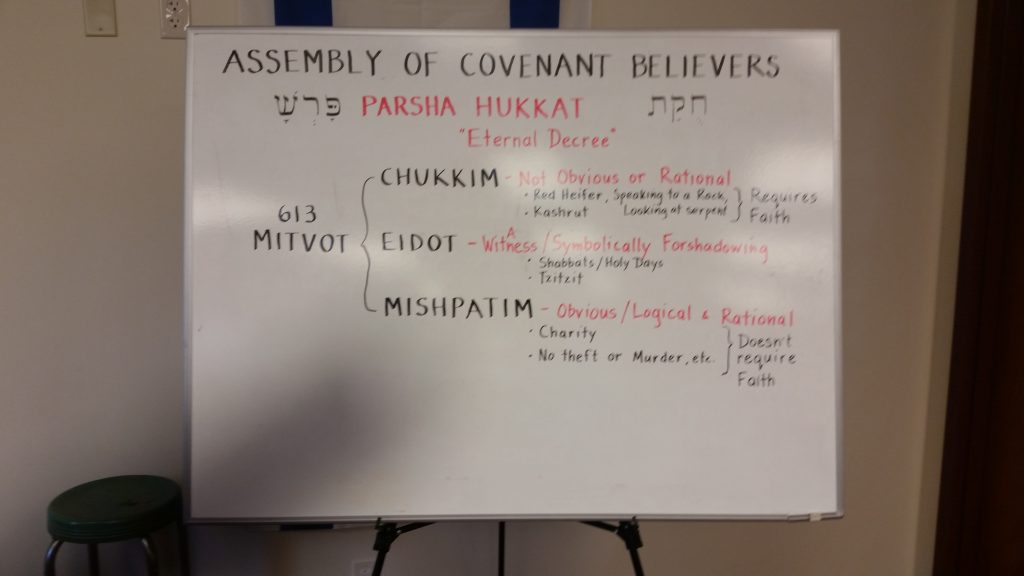 ASSEMBLY OF COVENANT BELIEVERS
פָּרְשָׁ PARSHA HUKKAT חֻקַּת
"Eternal Decree"
CHUKKIM - Not Obvious or Rational
· Red Heifer, Speaking to a Rock,
· Kashrut Looking at serpent
Requires
Faith
613
MITVOT
EIDOT - WitAness/Symbolically Forshadowing
· Shabbats/Holy Days
· Tzitzit
MISHPATIM - Obvious/Logical & Rational
· Charity
· No theft or Murder, etc.
Doesn't
require
Faith